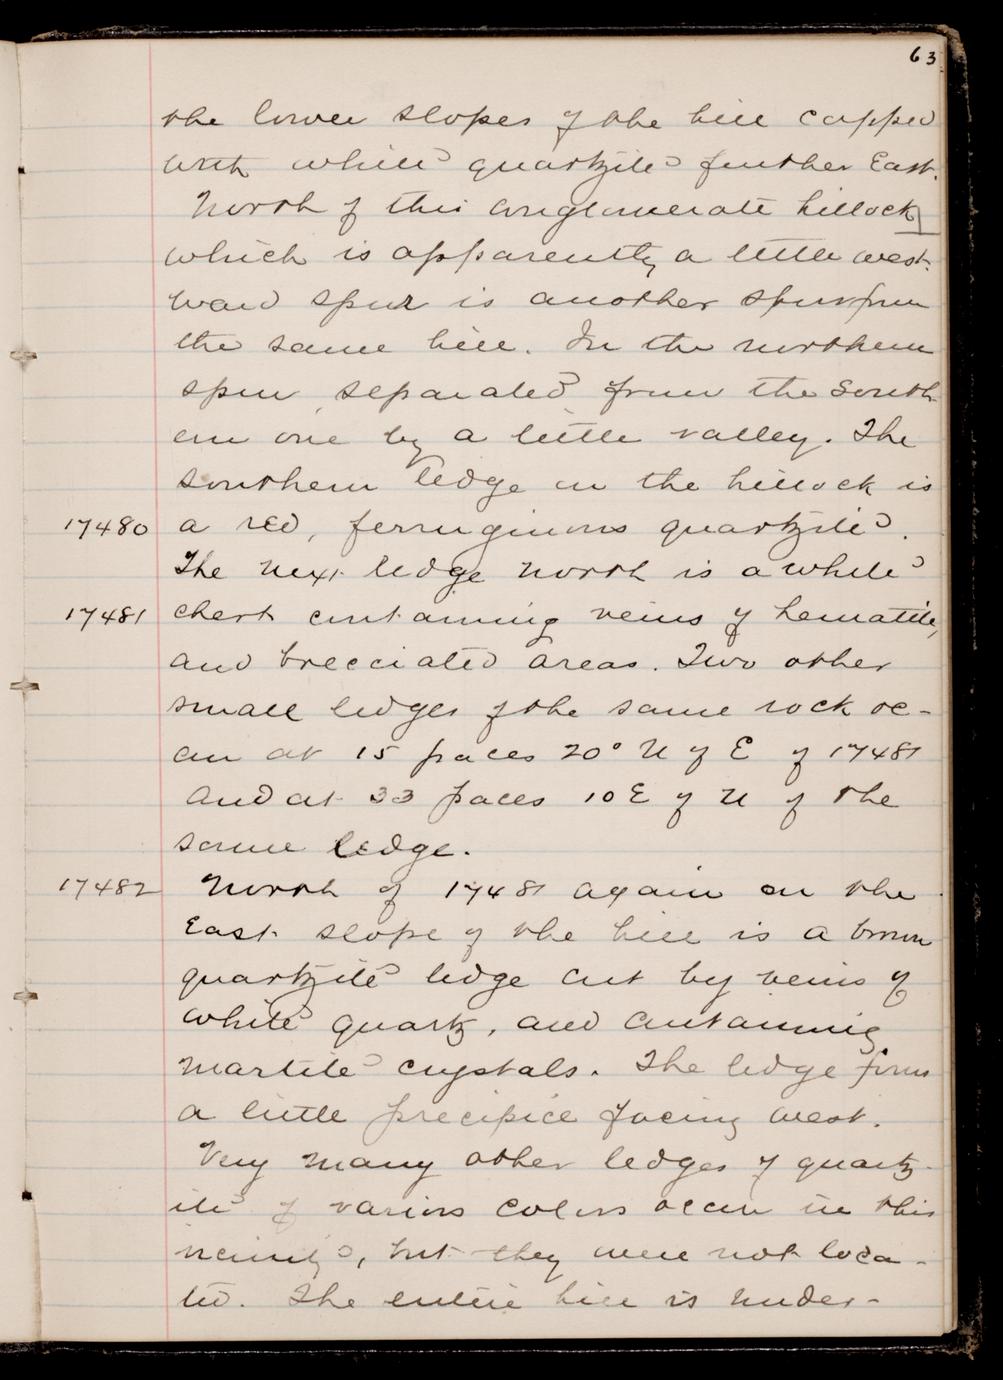 63
the lower slopes of the hill capped
with white quartzite further East.
North of this conglomerate hillock
which is apparently a little west-
ward spur is another spur from
the same hill. In the northern
spur, separated from the South-
ern one by a little valley. The
southern ledge on the hillock is
17480 a red, ferruginous quartzite.
The next ledge north is a white
17481 chert containing veins of hematite,
and brecciated areas. Two other
small ledges of the same rock oc-
cur at 15 paces 20° N of E of 17481
and at 33 paces 10 E of N of the
same ledge.
17482 North of 17481 again on the
East slope of the hill is a brown
quartzite ledge cut by veins of
white quartz, and containing
martite crystals. The ledge forms
a little precipice facing west.
Very many other ledges of quartz-
ite of various colors occur in this
vicinity, but they were not loca-
ted. The entire hill is under-